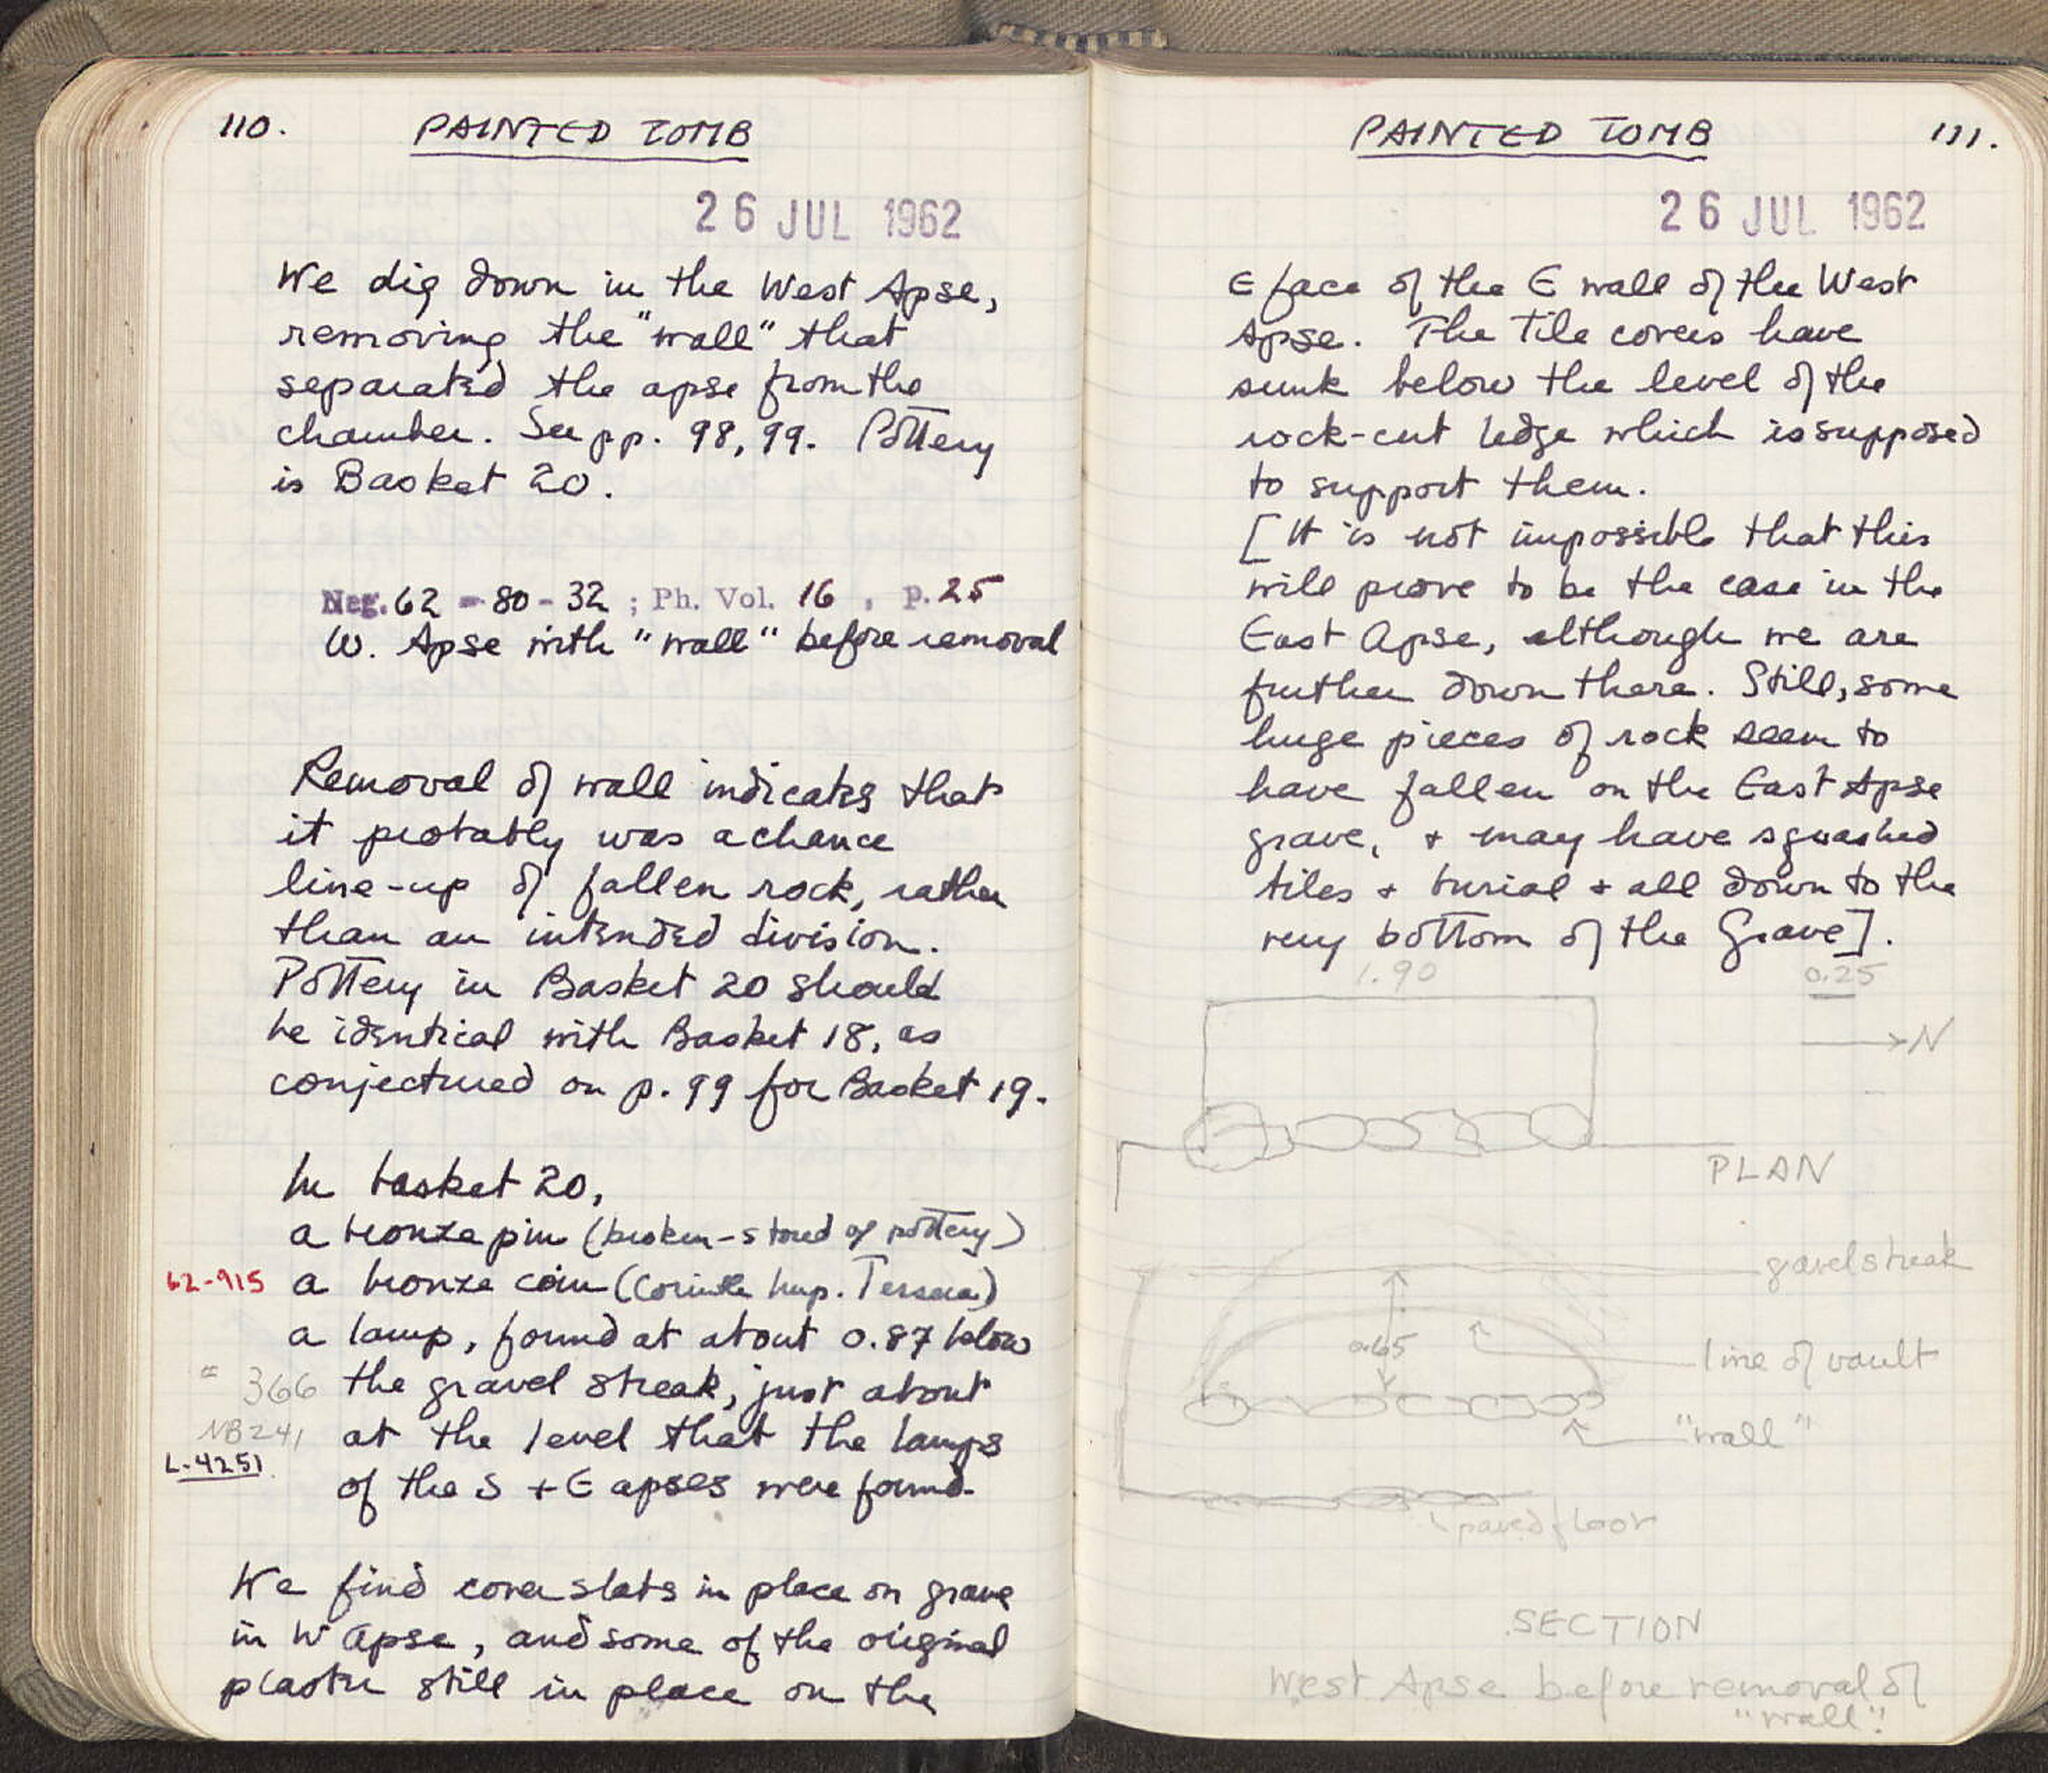 110.
PAINTED TOMB
26 JUL 1962
We dig down in the West Apse,
removing the "wall" that
separated the apse from the
chamber. See pp. 98, 99. Pottery
is Basket 20.
Neg. 62 - 80 - 32 ; Ph. Vol. 16 , p. 25
W. Apse with "wall" before removal
Removal of wall indicates that
it probably was a chance
line-up of fallen rock, rather
than an intended division.
Pottery in Basket 20 should
be identical with Basket 18, as
conjectured on p. 99 for Basket 19.
In basket 20,
a bronze pin (broken - stored w pottery)
62-915 a bronze coin (Corinth Imp. Tessera)
a lamp, found at about 0.87 below
= 366 the gravel streak, just about
NB241 at the level that the lamps
L-4251 of the S + E apses were found.
We find cover slabs in place on grave
in W Apse, and some of the original
plaster still in place on the
PAINTED TOMB
111.
26 JUL 1962
E face of the E wall of the West
Apse. The Tile covers have
sunk below the level of the
rock-cut ledge which is supposed
to support them.
[It is not impossible that this
will prove to be the case in the
East Apse, although we are
further down there. Still, some
huge pieces of rock seem to
have fallen on the East Apse
grave, + may have squashed
tiles + burial + all down to the
very bottom of the Grave].
1.90
0.25
N
PLAN
gravel streak
0.65
line of vault
"wall"
paved floor
SECTION
West Apse before removal of
"wall".